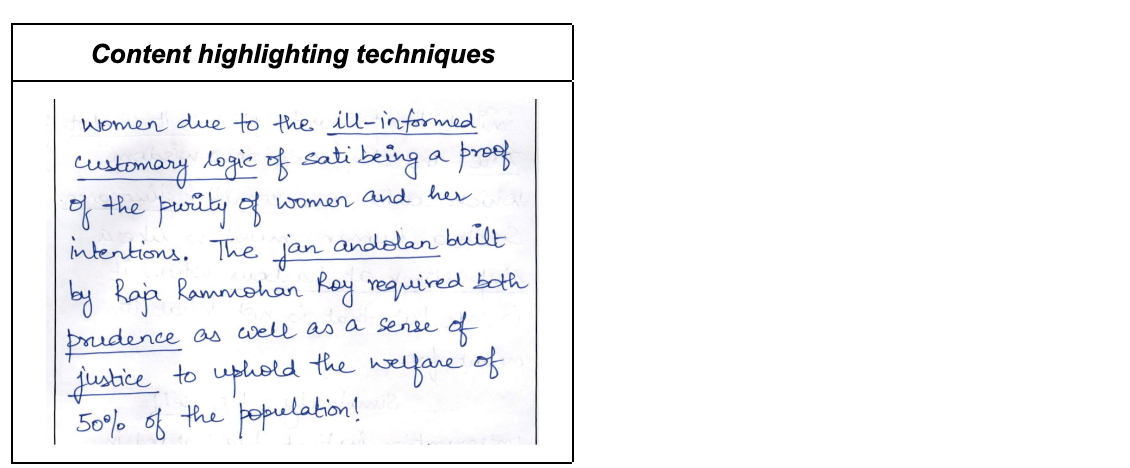 Content highlighting techniques
women due to the ill-informed
customary logic of sati being a proof
of the purity of women and her
intentions. The jan andolan built
by Raja Rammohan Roy required both
prudence as well as a sense of
justice to uphold the welfare of
50% of the population!